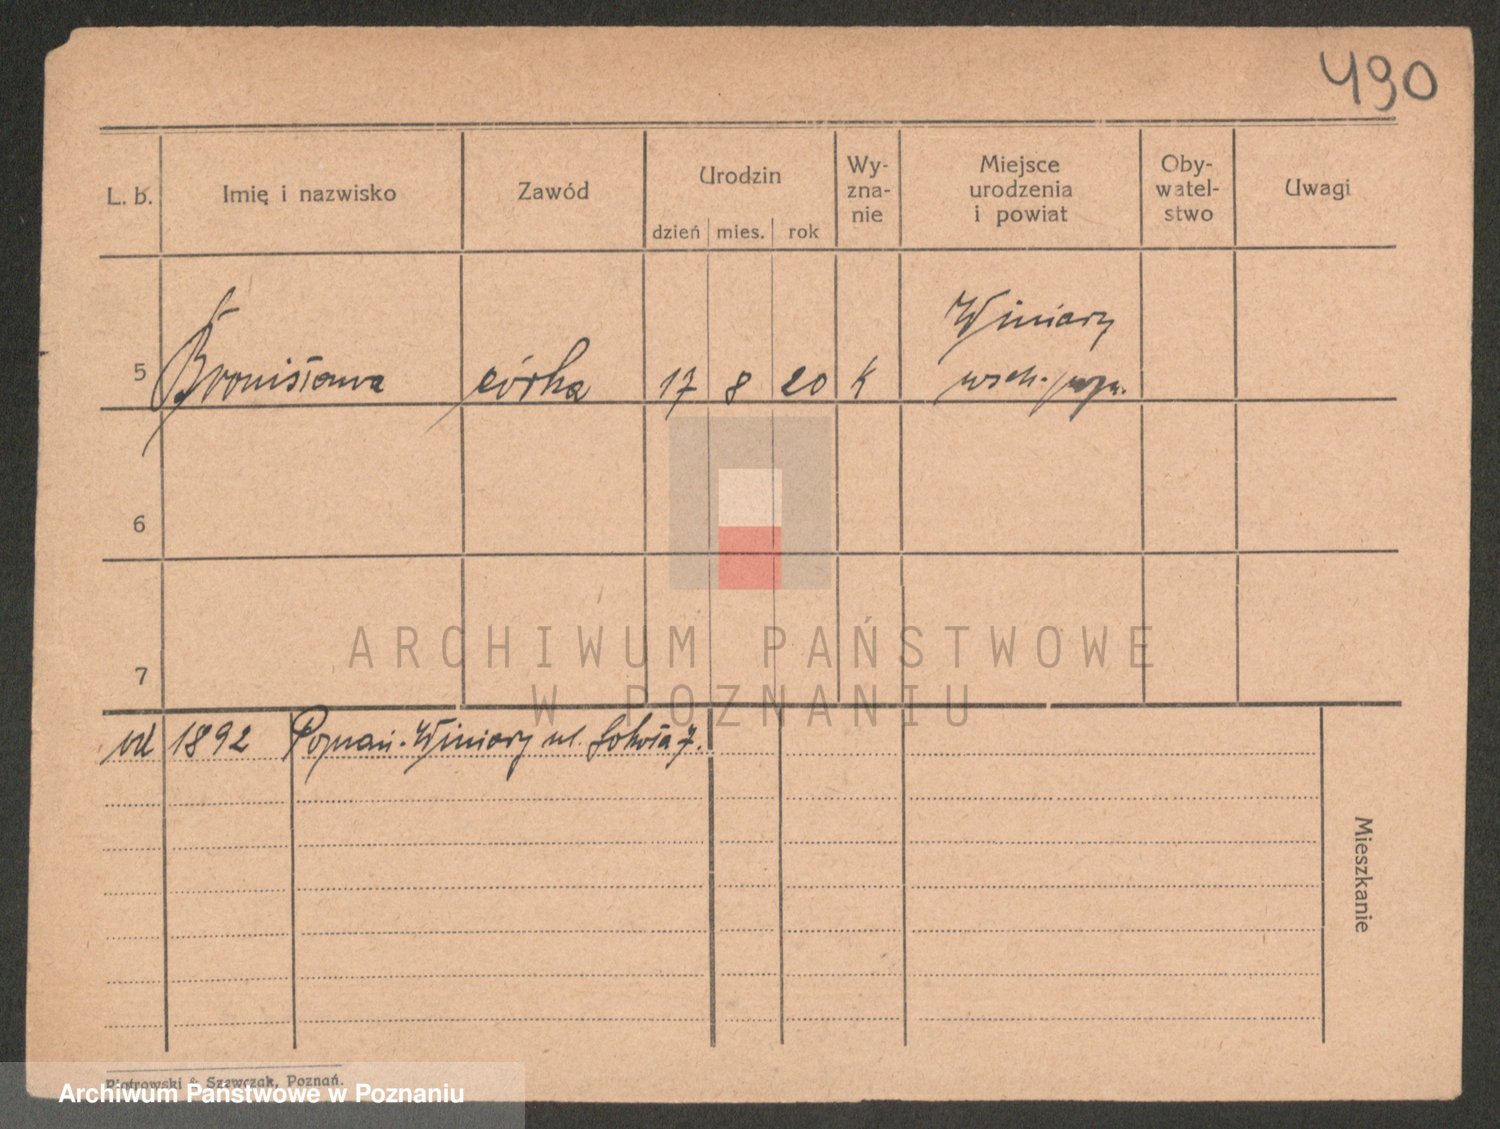 490
L. b.
Imię i nazwisko
Zawód
Urodzin
dzień mies. rok
Wy-
zna-
nie
Miejsce
urodzenia
i powiat
Oby-
watel-
stwo
Uwagi
Winiary
5 Bronisława córka 17 8 20 k wsch.
6
7
ARCHIWUM PAŃSTWOWE
W POZNANIU
od 1892 Poznań-Winiary ul. Sokoła 7.
Mieszkanie
Piotrowski & Szewczak, Poznań.
Archiwum Państwowe w Poznaniu